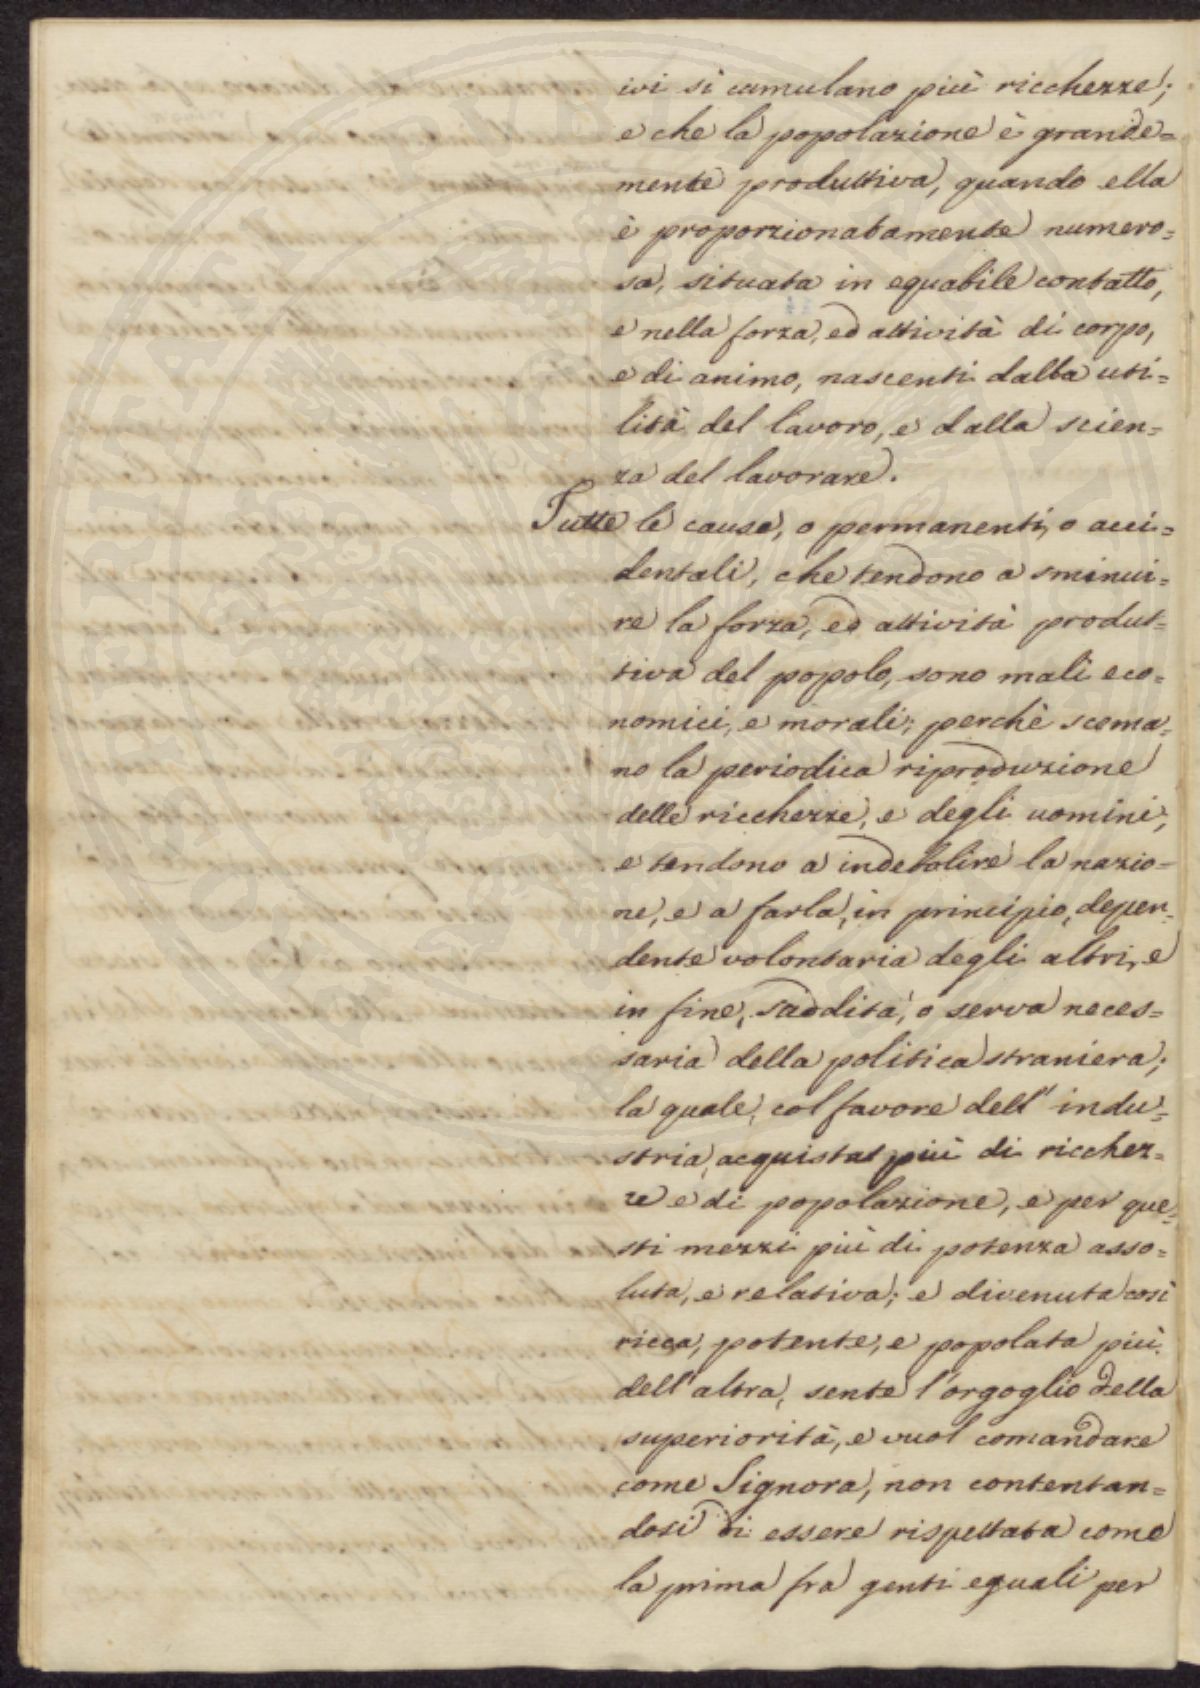 ivi si cumulano più ricchezze;
e che la popolazione è grande=
mente produttiva, quando ella
è proporzionatamente numero=
sa, situata in equabile contatto,
e nella forza, ed attività di corpo,
e di animo, nascenti dalla uti=
lità del lavoro, e dalla scien=
za del lavorare.
Tutte le cause, o permanenti, o acci=
dentali, che tendono a sminui=
re la forza, ed attività produt=
tiva del popolo, sono mali eco=
nomici, e morali; perchè scema=
no la periodica riproduzione
delle ricchezze, e degli uomini,
e tendono a indebolire la nazio=
ne, e a farla, in principio, depen=
dente volontaria degli altri, e
in fine, suddita, o serva neces=
saria della politica straniera;
la quale, col favore dell' indu=
stria, acquista più di ricchez=
ze e di popolazione, e per que=
sti mezzi più di potenza asso=
luta, e relativa; e divenuta così
ricca, potente, e popolata più
dell'altra, sente l'orgoglio della
superiorità, e vuol comandare
come Signora, non contentan=
dosi di essere rispettata come
la prima fra genti eguali per